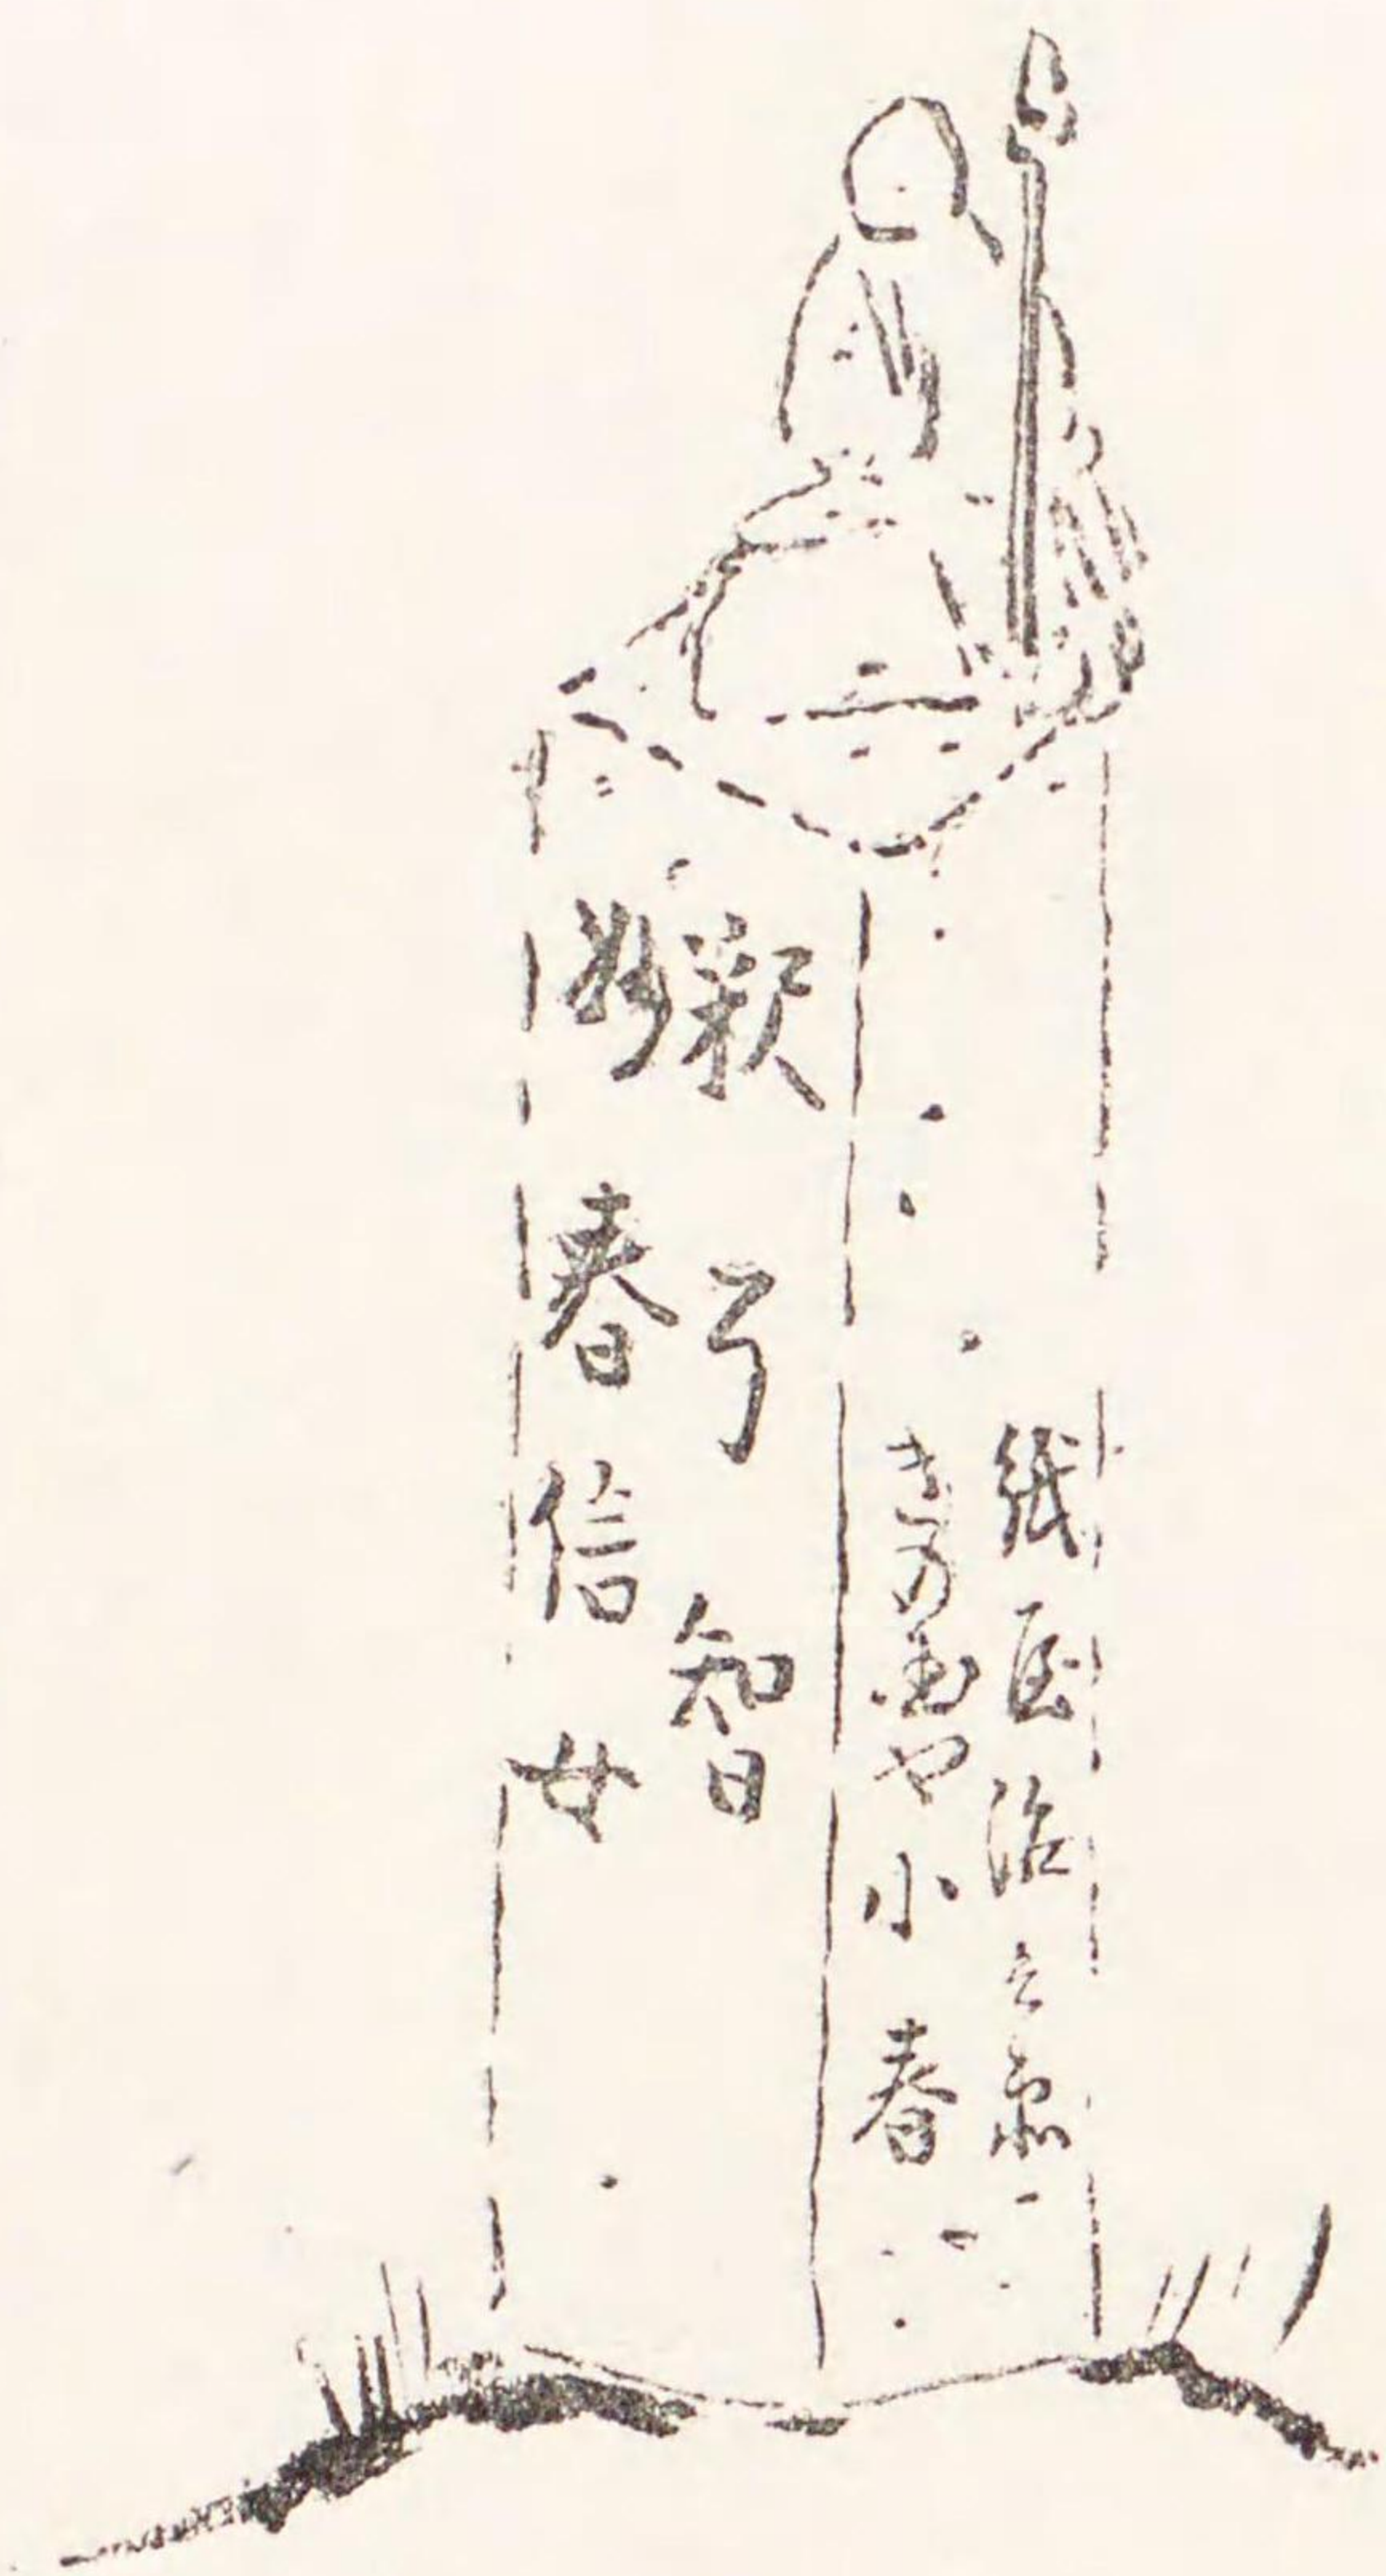 紙屋治兵衛
きの国や小春
釈了智
妙春信女